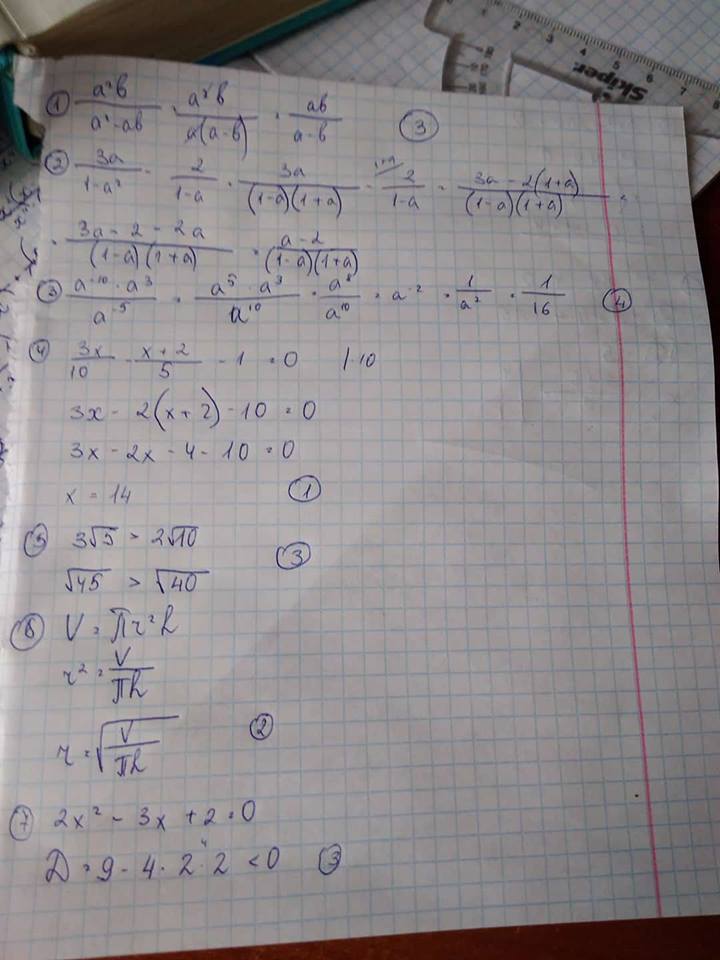 ① a²b / (a² - ab) = a²b / (a(a - b)) = ab / (a - b) ③
② 3a / (1 - a²) - 2 / (1 - a) = 3a / ((1 - a)(1 + a)) - 2 / (1 - a) = (3a - 2(1 + a)) / ((1 - a)(1 + a)) =
= (3a - 2 - 2a) / ((1 - a)(1 + a)) = (a - 2) / ((1 - a)(1 + a))
③ (a⁻¹⁰ · a³) / a⁻⁵ = (a⁵ · a³) / a¹⁰ = a⁸ / a¹⁰ = a⁻² = 1 / a² = 1 / 16 ④
④ 3x / 10 - (x + 2) / 5 - 1 = 0 | · 10
3x - 2(x + 2) - 10 = 0
3x - 2x - 4 - 10 = 0
x = 14 ①
⑤ 3√5 > 2√10
√45 > √40 ③
⑥ V = πr²h
r² = V / πh
r = √(V / πh) ②
⑦ 2x² - 3x + 2 = 0
D = 9 - 4 · 2 · 2 < 0 ③
1 2 3 4 5 6 7 8
Skiper